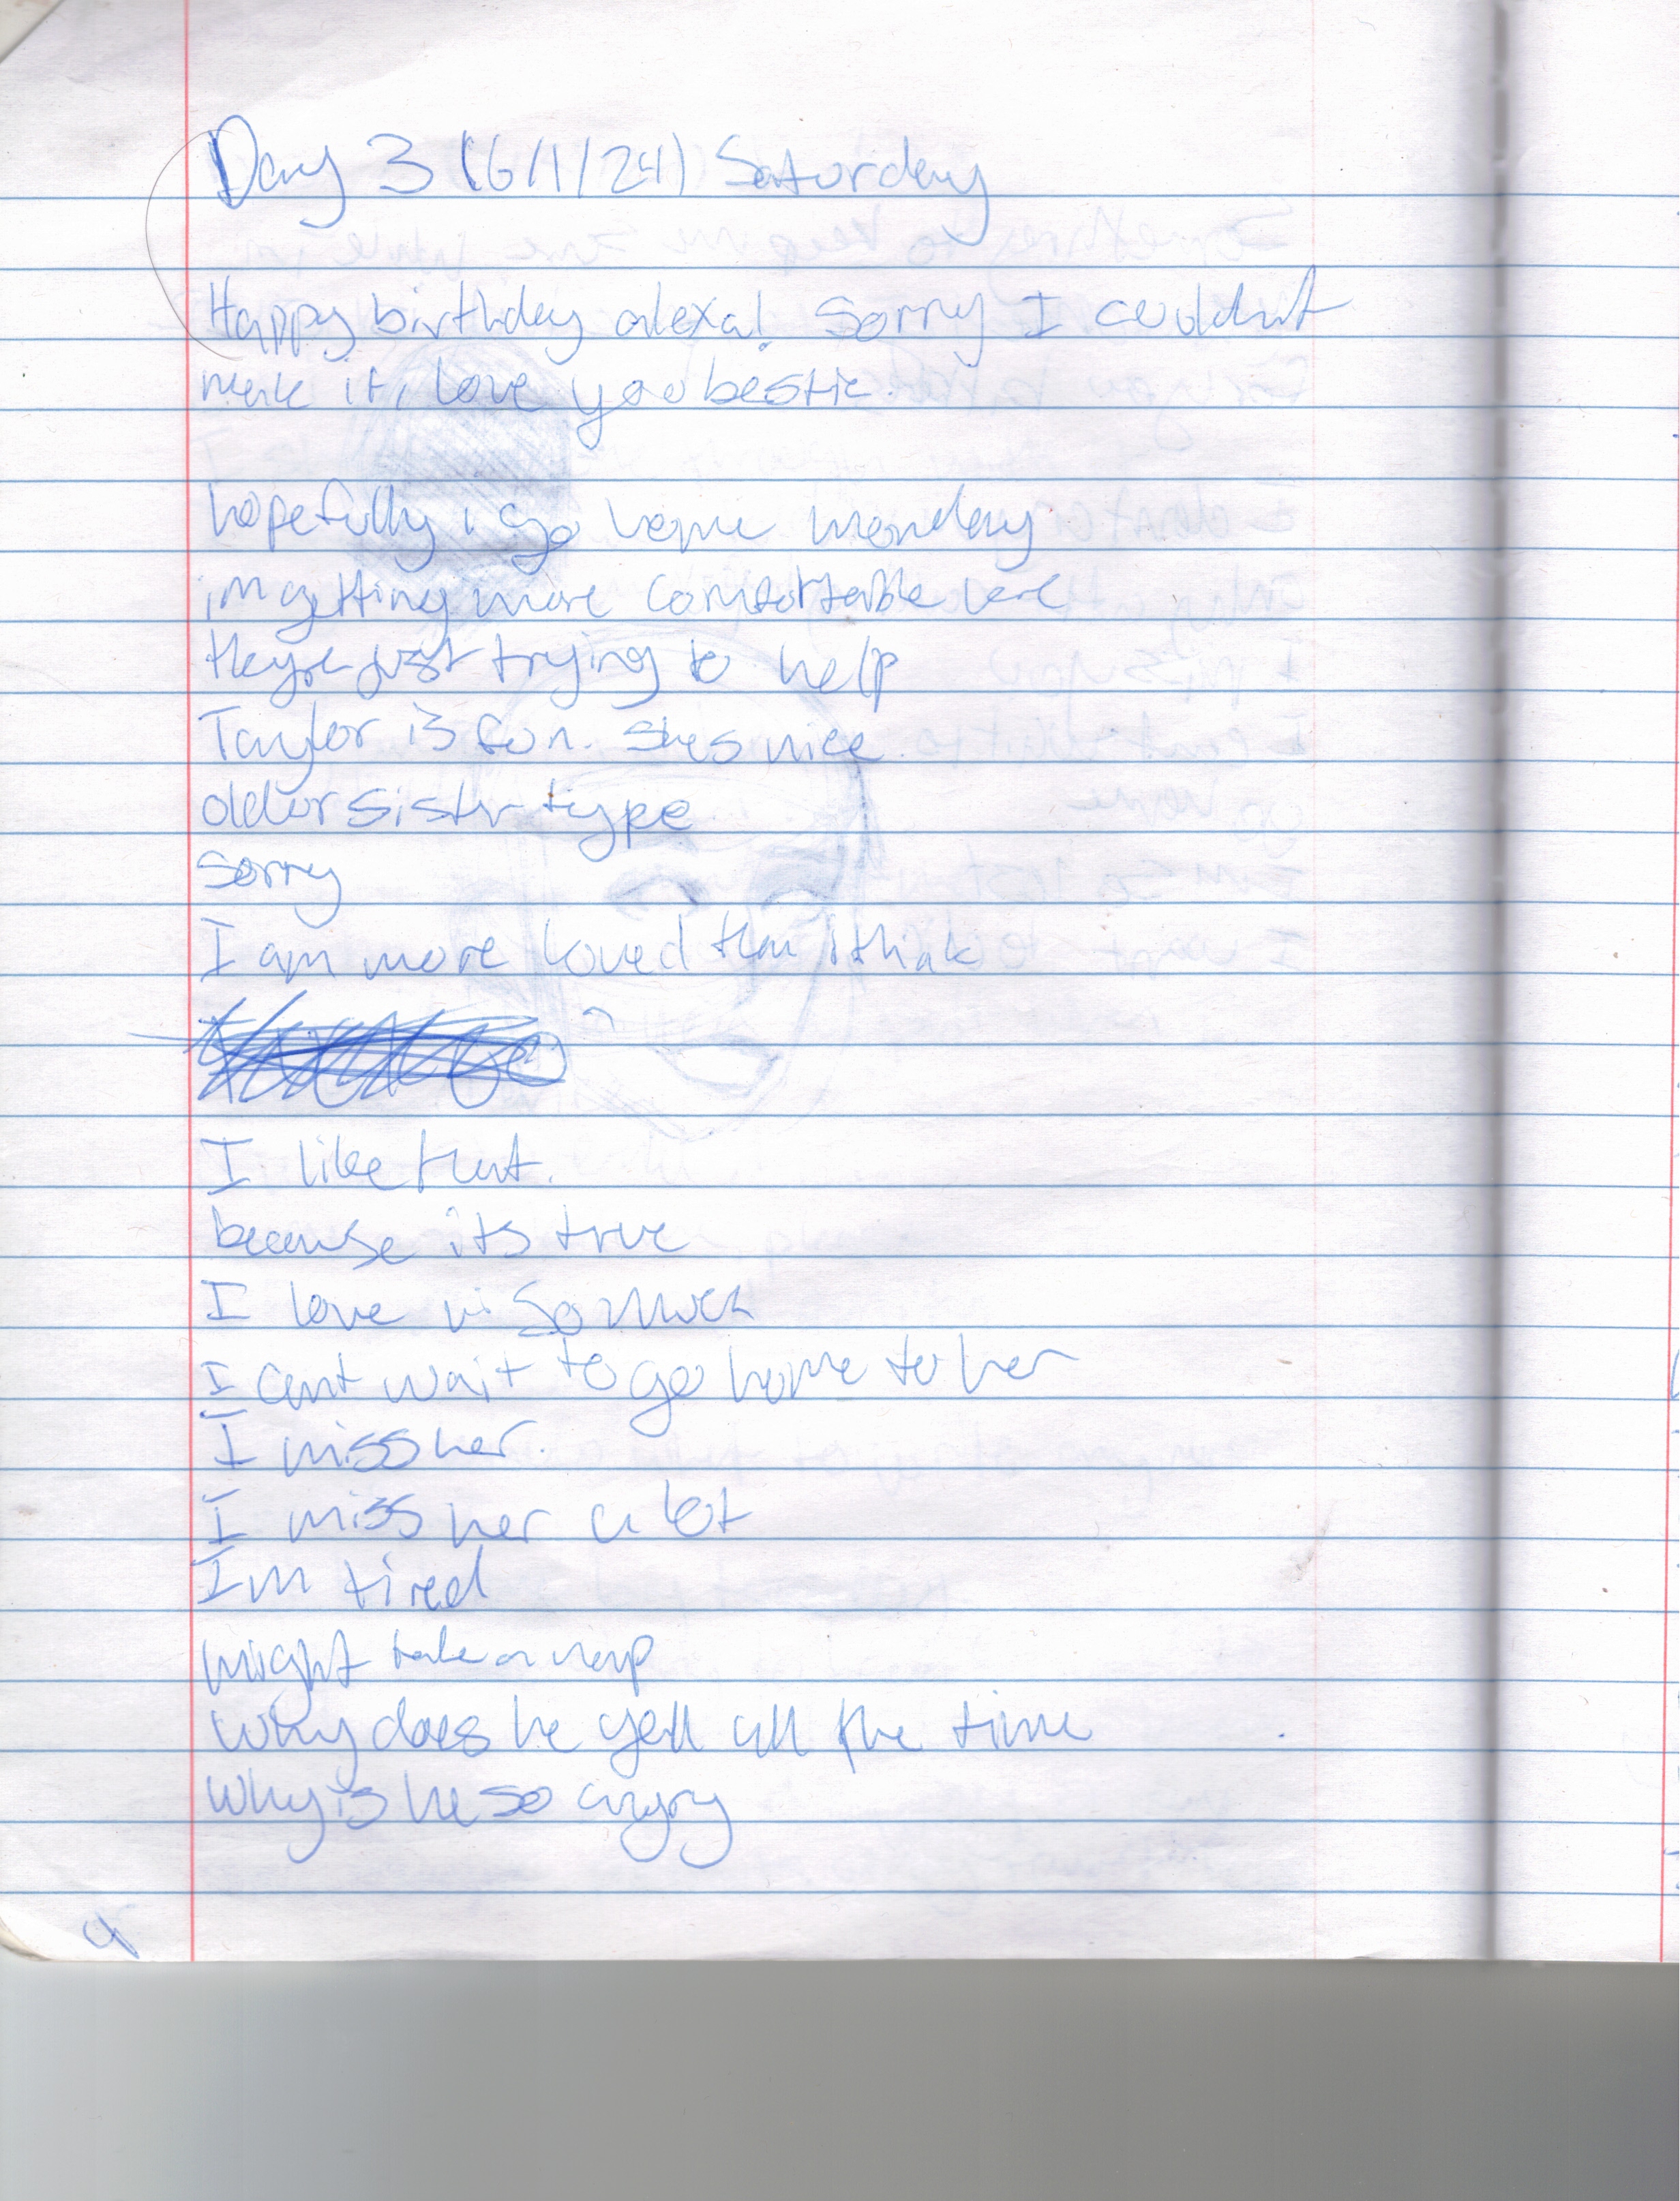 Day 3 (6/1/24) Saturday
Happy birthday alexa! Sorry I couldnt
make it, love you bestie.
hopefully i go home monday
im getting more comfortable here
theyre just trying to help
Taylor is fun. shes nice
older sister type
sorry
I am more loved than i think
I like that.
because its true
I love vi so much
I cant wait to go home to her
I miss her.
I miss her a lot
Im tired
might take a nap
Why does he yell all the time
Why is he so angry
4